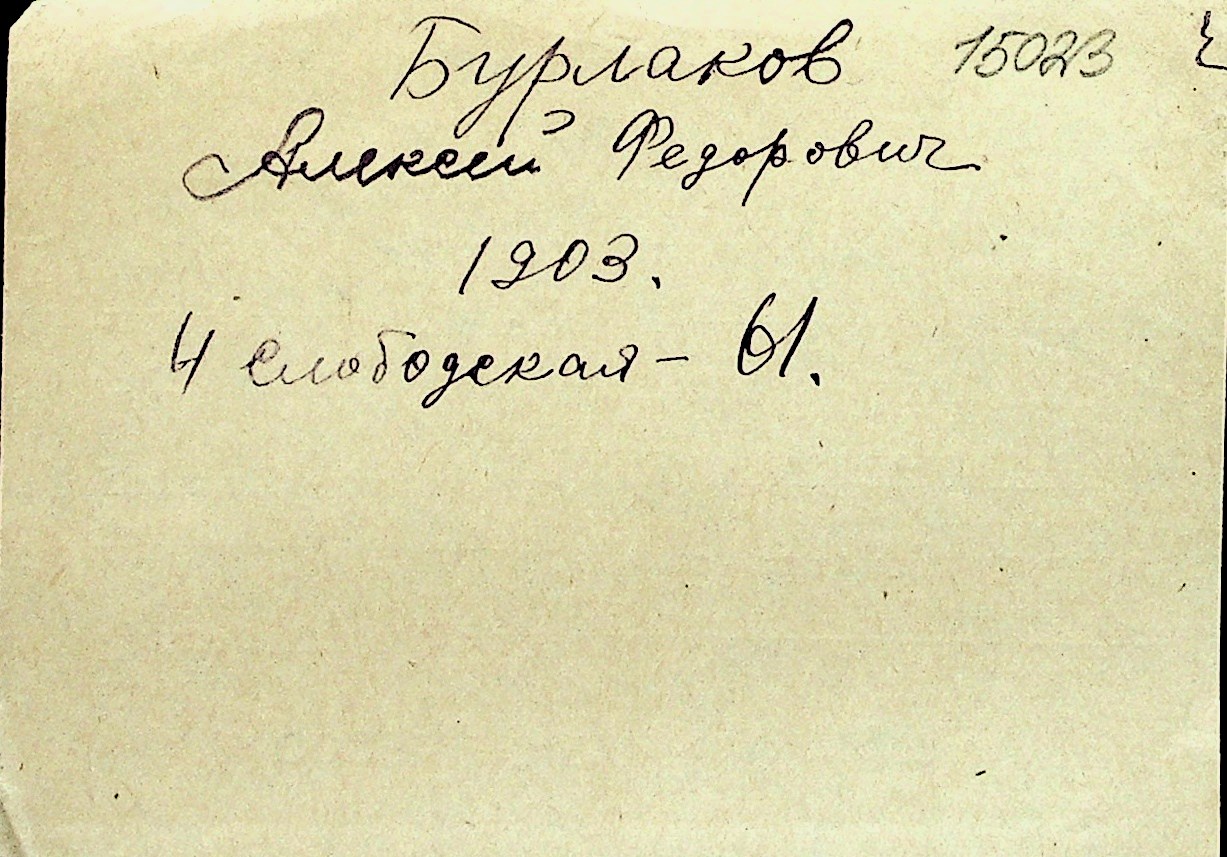 Бурлаков 15023
Алексей Федорович
1903.
4 слободская - 61.